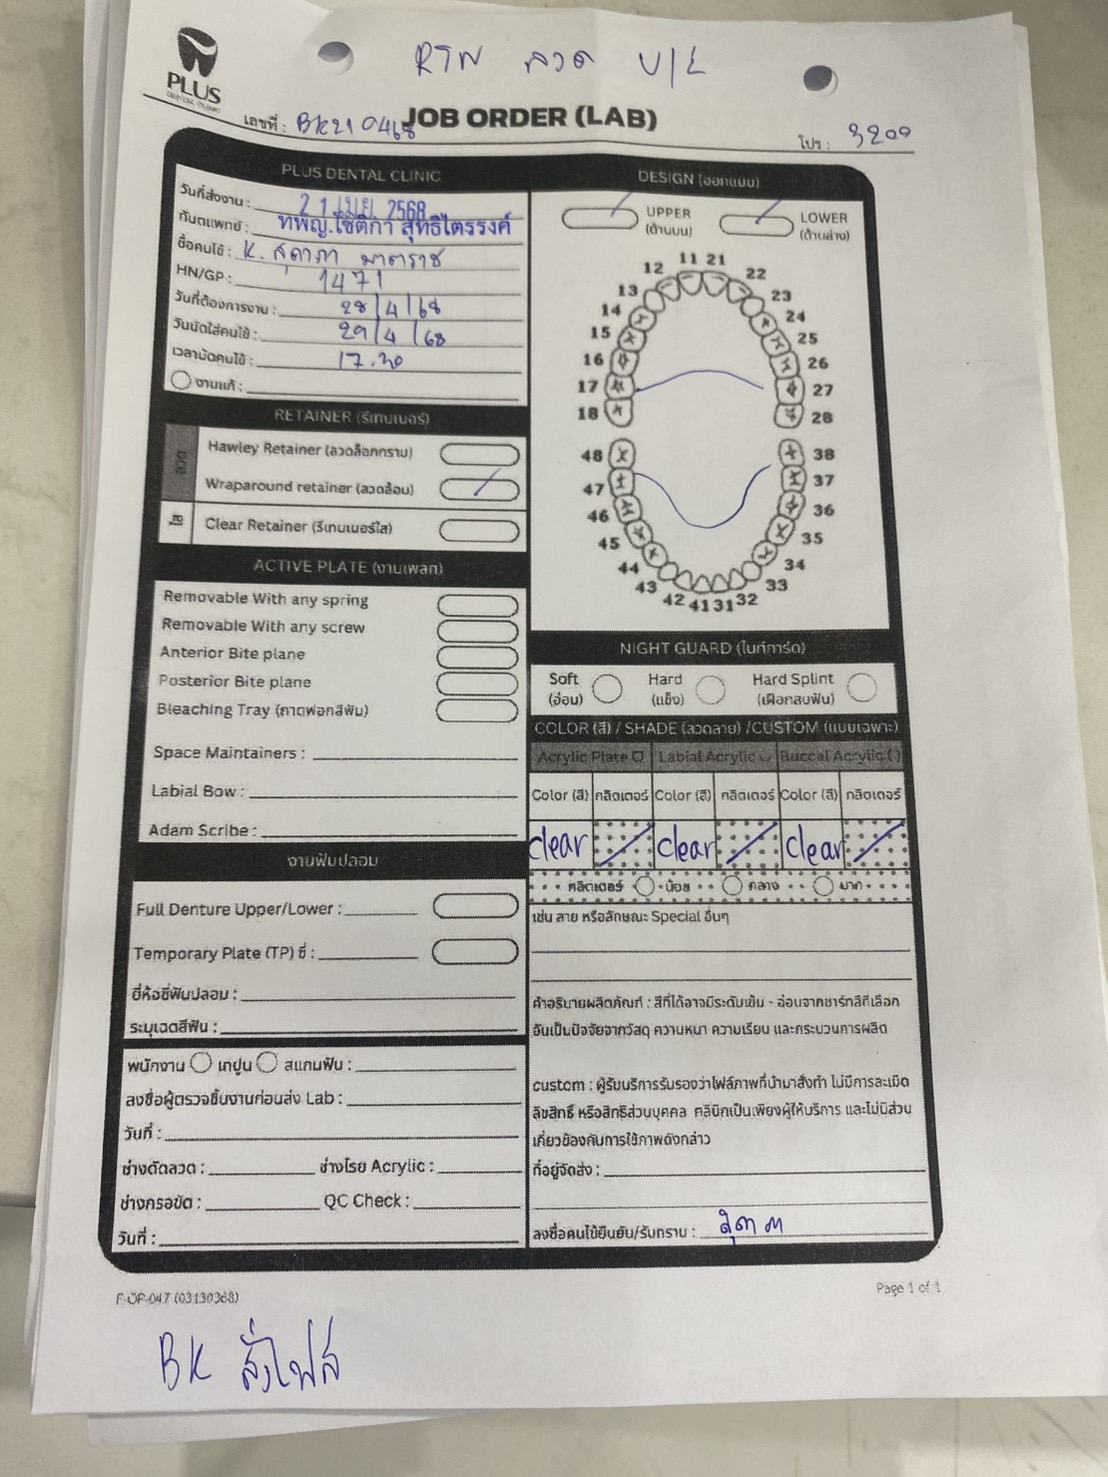 RTN ลวด U/L
PLUS
DENTAL CLINIC
JOB ORDER (LAB)
เลขที่ : BK210468
โปร : 3200
PLUS DENTAL CLINIC
วันที่ส่งงาน : 21 เม.ย. 2568
ทันตแพทย์ : ทพญ.โชติกา สุทธิไตรรงค์
ชื่อคนไข้ : K. สุดาภา มาตราช
HN/GP : 1471
วันที่ต้องการงาน : 28/4/68
วันนัดใส่คนไข้ : 29/4/68
เวลานัดคนไข้ : 17.30
งานแก้ :
RETAINER (รีเทนเนอร์)
ลวด
Hawley Retainer (ลวดล็อกกราม)
Wraparound retainer (ลวดล้อม)
ใส
Clear Retainer (รีเทนเนอร์ใส)
ACTIVE PLATE (งานเพลท)
Removable With any spring
Removable With any screw
Anterior Bite plane
Posterior Bite plane
Bleaching Tray (ถาดฟอกสีฟัน)
Space Maintainers :
Labial Bow :
Adam Scribe :
งานฟันปลอม
Full Denture Upper/Lower :
Temporary Plate (TP) ซี่ :
ยี่ห้อซี่ฟันปลอม :
ระบุเฉดสีฟัน :
พนักงาน เทปูน สแกนฟัน :
ลงชื่อผู้ตรวจชิ้นงานก่อนส่ง Lab :
วันที่ :
ช่างดัดลวด : ช่างโรย Acrylic :
ช่างกรอขัด : QC Check :
วันที่ :
DESIGN (ออกแบบ)
UPPER (ด้านบน)
LOWER (ด้านล่าง)
11 21
12 22
13 23
14 24
15 25
16 26
17 27
18 28
48 38
47 37
46 36
45 35
44 34
43 33
42 41 31 32
NIGHT GUARD (ไนท์การ์ด)
Soft (อ่อน)
Hard (แข็ง)
Hard Splint (เฝือกสบฟัน)
COLOR (สี) / SHADE (ลวดลาย) /CUSTOM (แบบเฉพาะ)
Acrylic Plate Labial Acrylic Buccal Acrylic
Color (สี) กลิตเตอร์ Color (สี) กลิตเตอร์ Color (สี) กลิตเตอร์
clear clear clear
กลิตเตอร์ น้อย กลาง มาก
เช่น ลาย หรือลักษณะ Special อื่นๆ
คำอธิบายผลิตภัณฑ์ : สีที่ได้อาจมีระดับเข้ม - อ่อนจากชาร์ทสีที่เลือก
อันเป็นปัจจัยจากวัสดุ ความหนา ความเรียบ และกระบวนการผลิต
custom : ผู้รับบริการรับรองว่าไฟล์ภาพที่นำมาสั่งทำ ไม่มีการละเมิด
ลิขสิทธิ์ หรือสิทธิส่วนบุคคล คลินิกเป็นเพียงผู้ให้บริการ และไม่มีส่วน
เกี่ยวข้องกับการใช้ภาพดังกล่าว
ที่อยู่จัดส่ง :
ลงชื่อคนไข้ยืนยัน/รับทราบ :
F-OP-047 (03130368)
Page 1 of 1
BK สั่งไฟล์